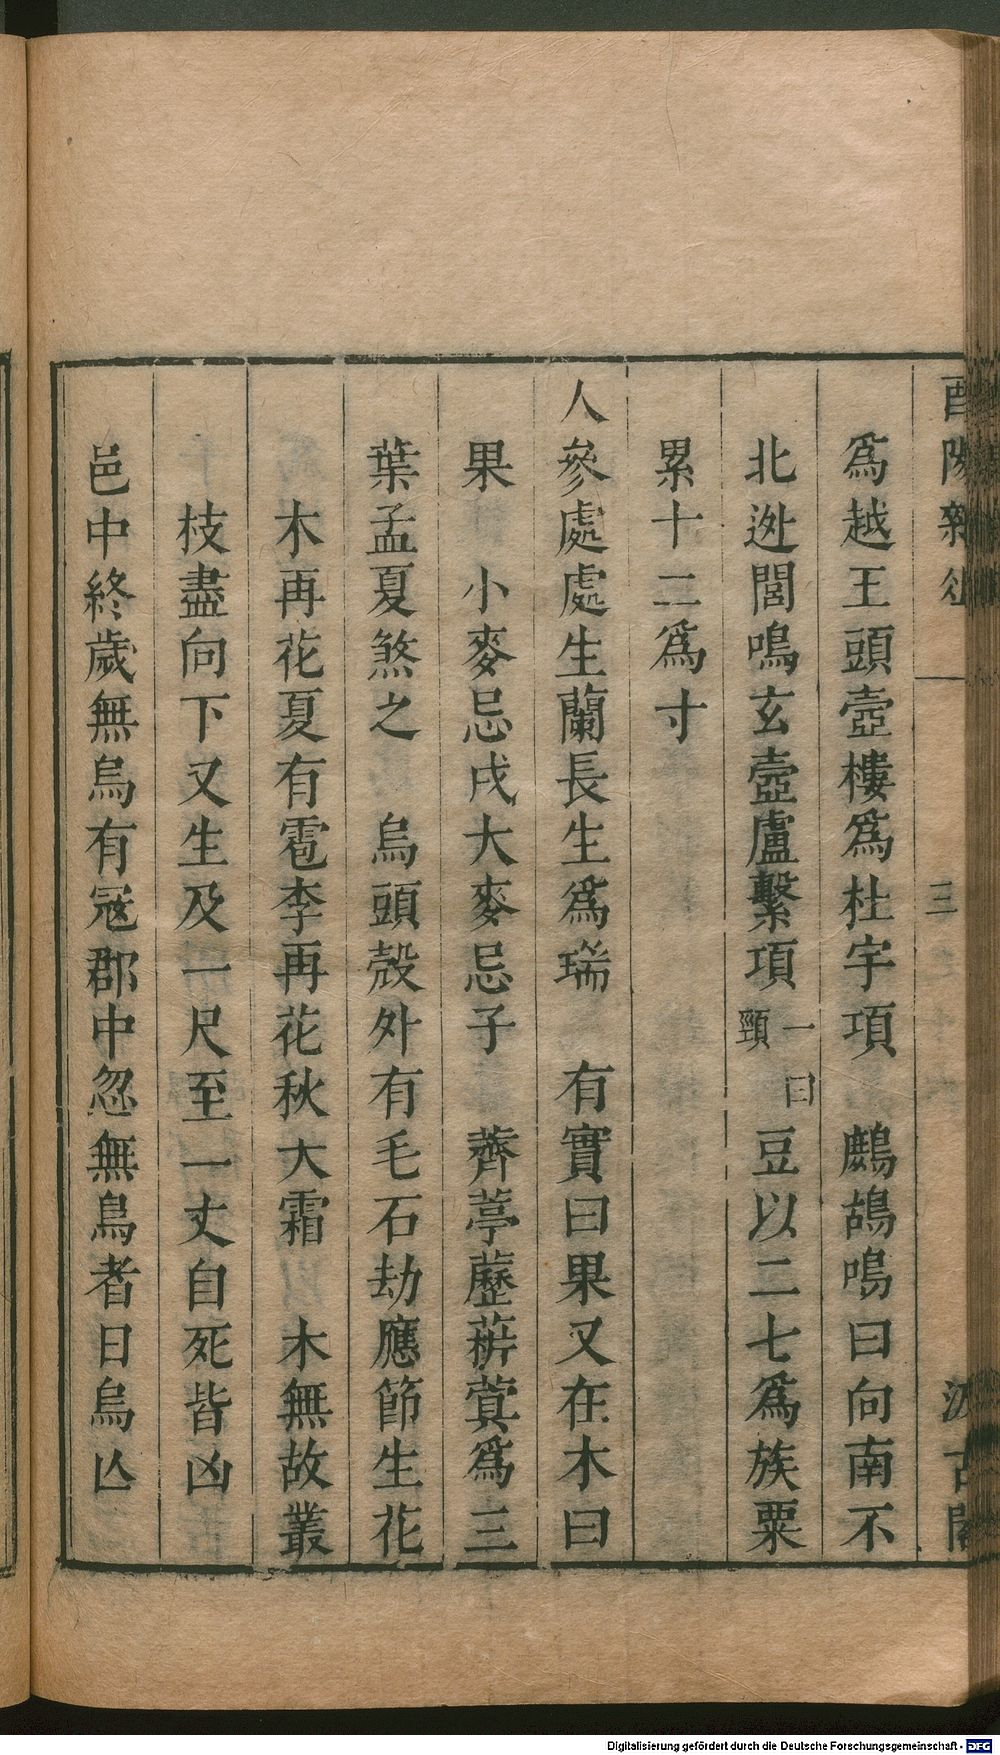 酉陽雜俎 三 汲古閣
爲越王頭壺樓爲杜宇項 鷓鴣鳴曰向南不
北逊閻鳴玄壺盧繫項一曰頸豆以二七爲族粟
累十二爲寸
人參處處生蘭長生爲瑞 有實曰果又在木曰
果 小麥忌戌大麥忌子 薺葶藶菥蓂爲三
葉孟夏煞之 烏頭殼外有毛石劫應節生花
木再花夏有雹李再花秋大霜 木無故叢
枝盡向下又生及一尺至一丈自死皆凶
邑中終歲無烏有冦郡中忽無鳥者日烏亾
Digitalisierung gefördert durch die Deutsche Forschungsgemeinschaft - DFG